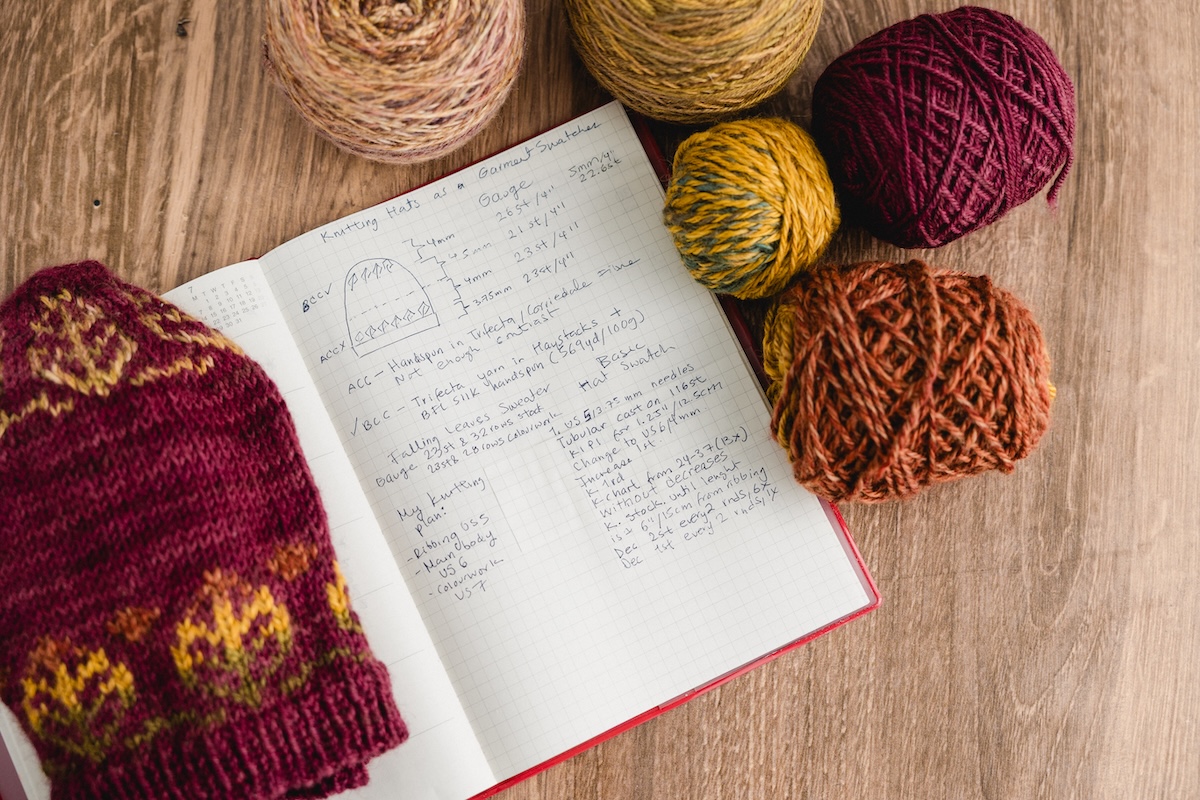 7
M T W T F S
Knitting Hats as a Garment Swatches
Gauge
5mm/4"
22.6st
4mm 26st/4"
4.5mm 21st/4"
4mm 23st/4"
3.75mm 23st/4"
BCCV
ACCX
ACC - Handspun in Trifecta/Corriedale =ine
Not enough contrast
✓BCC - Trifecta yarn in Haystacks +
BFL silk handspun (369yd/100g)
Falling Leaves Sweater
Gauge 23st & 32 rows stock.
23st & 28 rows colourwork.
My Knitting
plan:
- Ribbing US5
- Main body
US 6
- Colourwork
US 7
Basic
Hat Swatch
1. US 5/3.75 mm needles
Tubular cast on 116st
K1 P1 for 1.25"/12.5cm
Change to US6/4mm
Increase 1st
K 1rd
K chart from 24-37 (13x)
without decreases
K. stock. until lenght
is ± 6"/15cm from ribbing
Dec 2st every 2 rnds, 6x
Dec 1st every 2 rnds, 1x